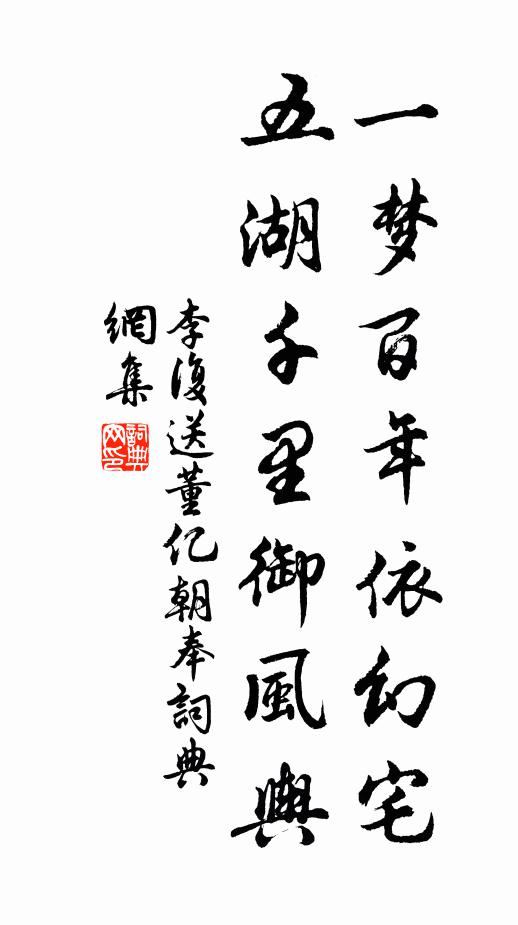 一梦百年依幻宅
五湖千里御風輿
李復送董亿朝奉詞典
網集
詞典網印